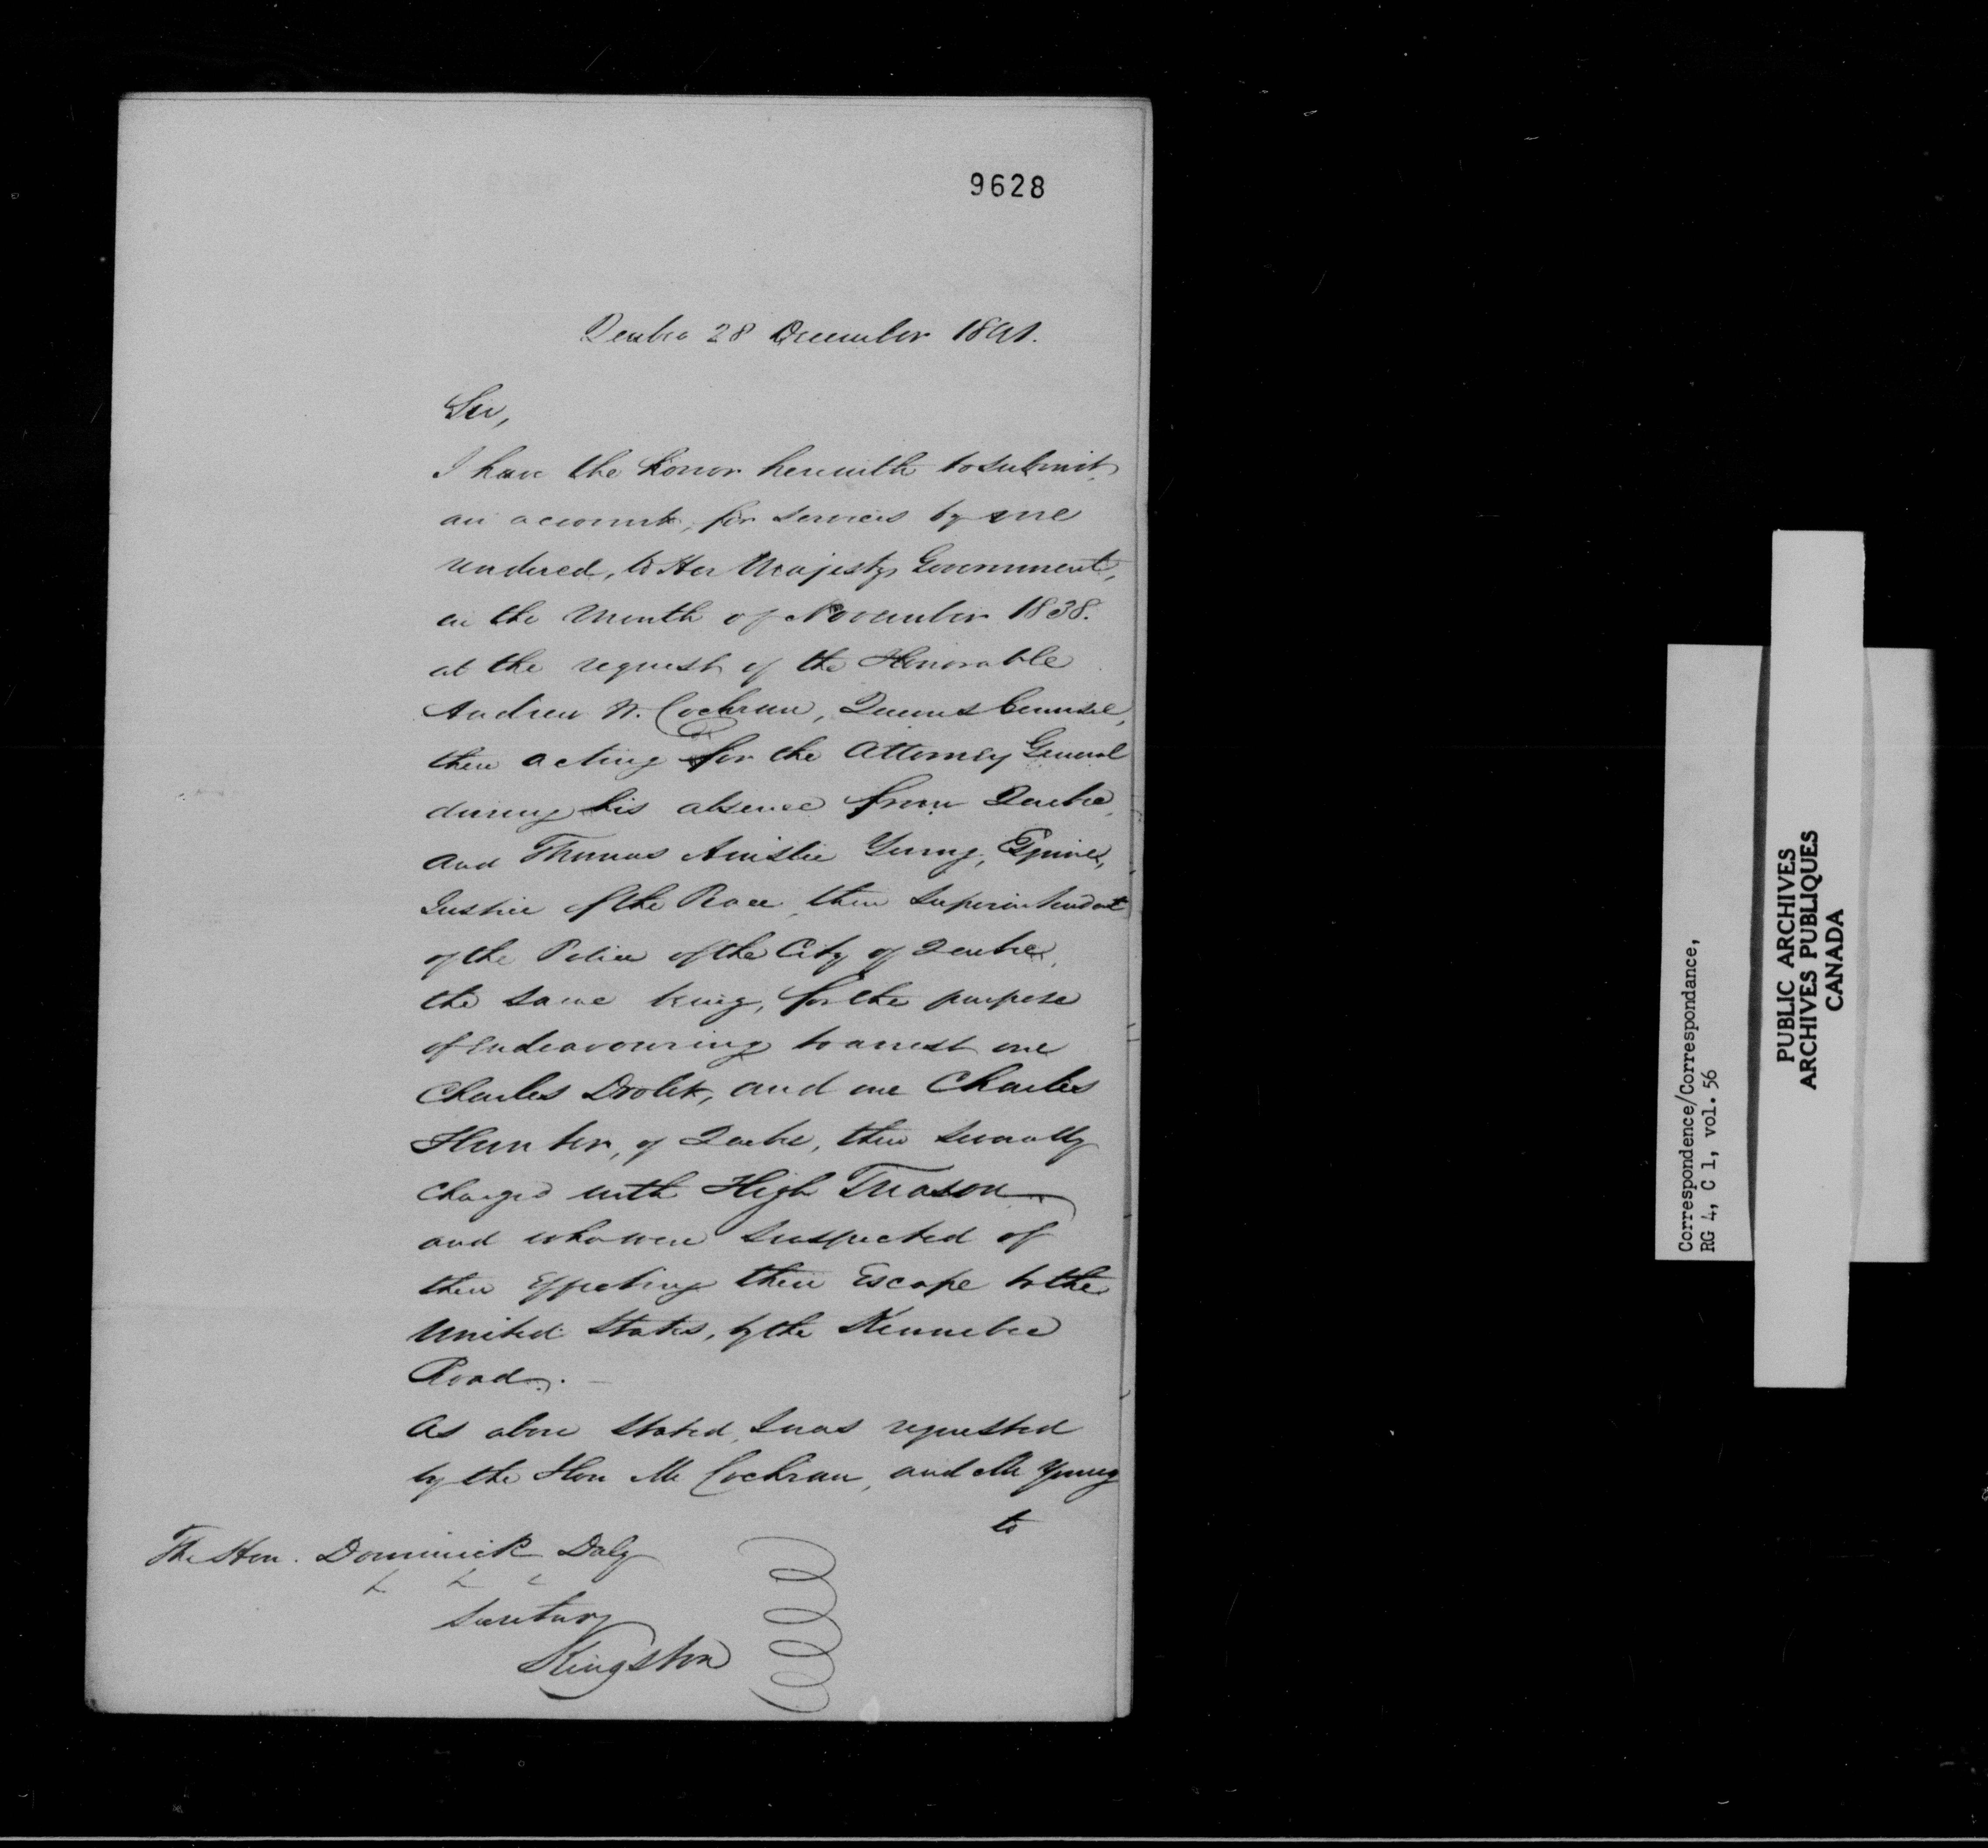 9628
Quebec 28 December 1841.
Sir,
I have the honor herewith to submit,
an account, for services by me
rendered, to Her Majestys Government,
in the Month of November 1838.
at the request of the Honorable
Andrew W. Cochran, Queens Counsel,
then acting for the Attorney General
during his absence from Quebec,
and Thomas Ainslie Young, Esquire,
Justice of the Peace, then Superintendent
of the Police of the City of Quebec,
the same being, for the purpose
of endeavouring to arrest one
Charles Drolet, and one Charles
Hunter, of Quebec, then severally
charged with High Treason
and who were suspected of
then effecting their Escape to the
United States, by the Kennebec
Road.
As above stated, I was requested
by the Hon Mr Cochran, and Mr Young
to
The Hon. Dominick Daly
Secretary
Kingston
Correspondence/Correspondance,
RG 4, C 1, vol. 56
PUBLIC ARCHIVES
ARCHIVES PUBLIQUES
CANADA